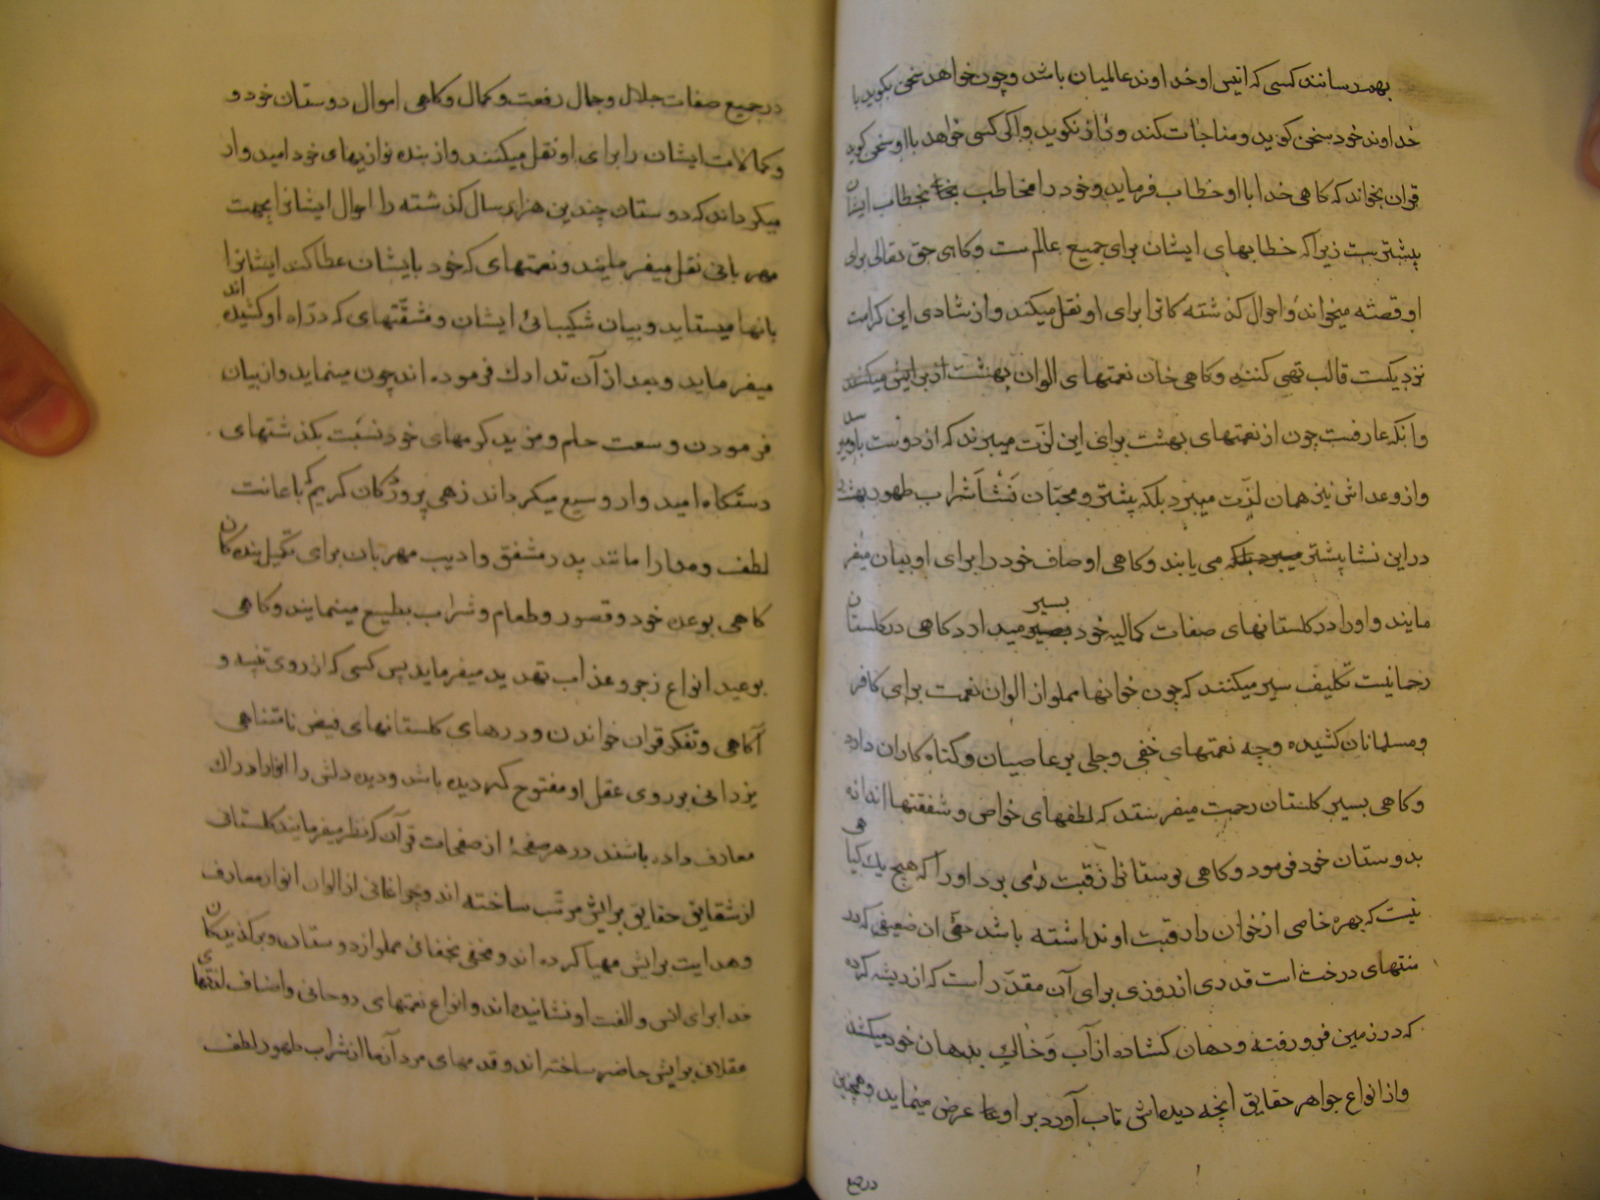 بهمرسانند کسی که انیس او خداوند عالمیان باشد و چون خواهد سخن بگوید با
خداوند خود سخن گوید و مناجات کند و راز گوید و اگر کسی خواهد با او سخن گوید
قران بخواند که کاهی خدا با او خطاب فرماید و خود را مخاطب بخطاب ایشان
پیشتر است زیرا که خطابهای ایشان برای جمیع عالم است و کاهی حق تعالی برای
او قصّه میخواند و احوال کذشته کانرا برای او نقل میکند و از شادی این کرامت
نزدیکست قالب تهی کنند و کاهی خان نعمتهای الوان بهشت از برایش میکشند
و انکه عارفست چون از نعمتهای بهشت برای این لذّت میبرند که از دوست باو میرسد
و از وعداش نیز همان لذّت میبرد بلکه پیشتر و محبّان نشأ شراب طهور بهشت
در این نشا پیشتر می یابند و کاهی اوصاف خود را برای او بیان میفر
مایند و او را در کلستانهای صفات کمالیه خود بسیر میدارد کاهی در کلستان
رحمانیت تکلیف سیر میکنند که چون خوانها مملو از الوان نعمت برای کافر
و مسلمانان کشیده و چه نعمتهای خفی و جلی بر عاصیان و کناه کاران دارد
و کاهی بسیر کلستان رحمت میفرستند که لطفهای خاص و شفقتها اندازه
بدوستان خود فرمود و کاهی بوستان رازقیت ره می برد او را که هیچ یک کیاهی
نیست که بهره خاصی از خوان رازقیت او نداشته باشد حتّی ان ضعیفی که بر
منتهای درخت است قدری از روزی برای آن مقدّر است که از ریشه کرده
که در زمین فرو رفته و دهان کشاده از آب و خاک بدهان خود میکشد
و از انواع جواهر حقایق انچه دیدهاش تاب آورد بر او عرض مینماید و همچنین
در جمیع
در جمیع صفات جلال و جمال رفعت و کمال و کاهی اموال دوستان خود و
و کمالات ایشان را برای او نقل میکنند و از بنده نوازیهای خود امیدوار
میکرداند که دوستان چندین هزار سال کذشته را احوال ایشانرا بجهت
مهربانی نقل میفرمایند و نعمتهای که خود بایشان عطا کند ایشانرا
بانها میستاید و بیان شکیبائی ایشان و مشقّتهای که در راه او کشیده اند
میفرماید و بعد از آن تدارک فرموده اند چون مینماید و از بیان
فرمودن و سعت حلم و مزید کرمهای خود نسبت بکذشتهای
دستکاه امید وار وسیع میکرداند زهی پروردکان کریم که باعانت
لطف و مدارا مانند پدر مشفق و ادیب مهربان برای تکمیل بنده کان
کاهی بوعده خود و قصور و طعام و شراب بطیع مینمایند و کاهی
بوعید انواع زجر و عذاب تهدید میفرماید پس کسی که از روی تنبیه و
آکاهی و تفکر قران خواندن و درهای کلستانهای فیض نامتناهی
یزدانی بر روی عقل او مفتوح کردیده باشد و دیده دلش را انوار ادراک
معارف داده باشند در هر صفحهٔ از صفحات قرآن که نظر میفرمایند کلستانی
از شقایق حقایق برایش مرتّب ساخته اند و چراغانی از الوان انوار معارف
و هدایت برایش مهیا کرده اند و محفی مملو از دوستان و برکذیده کان
خدا برای انس و الفت او نشانیده اند و انواع نعمتهای روحانی و اصناف لذّتهای
عقلانی برایش حاضر ساخته اند و قدمهای مرد آزما از شراب طهور لطف